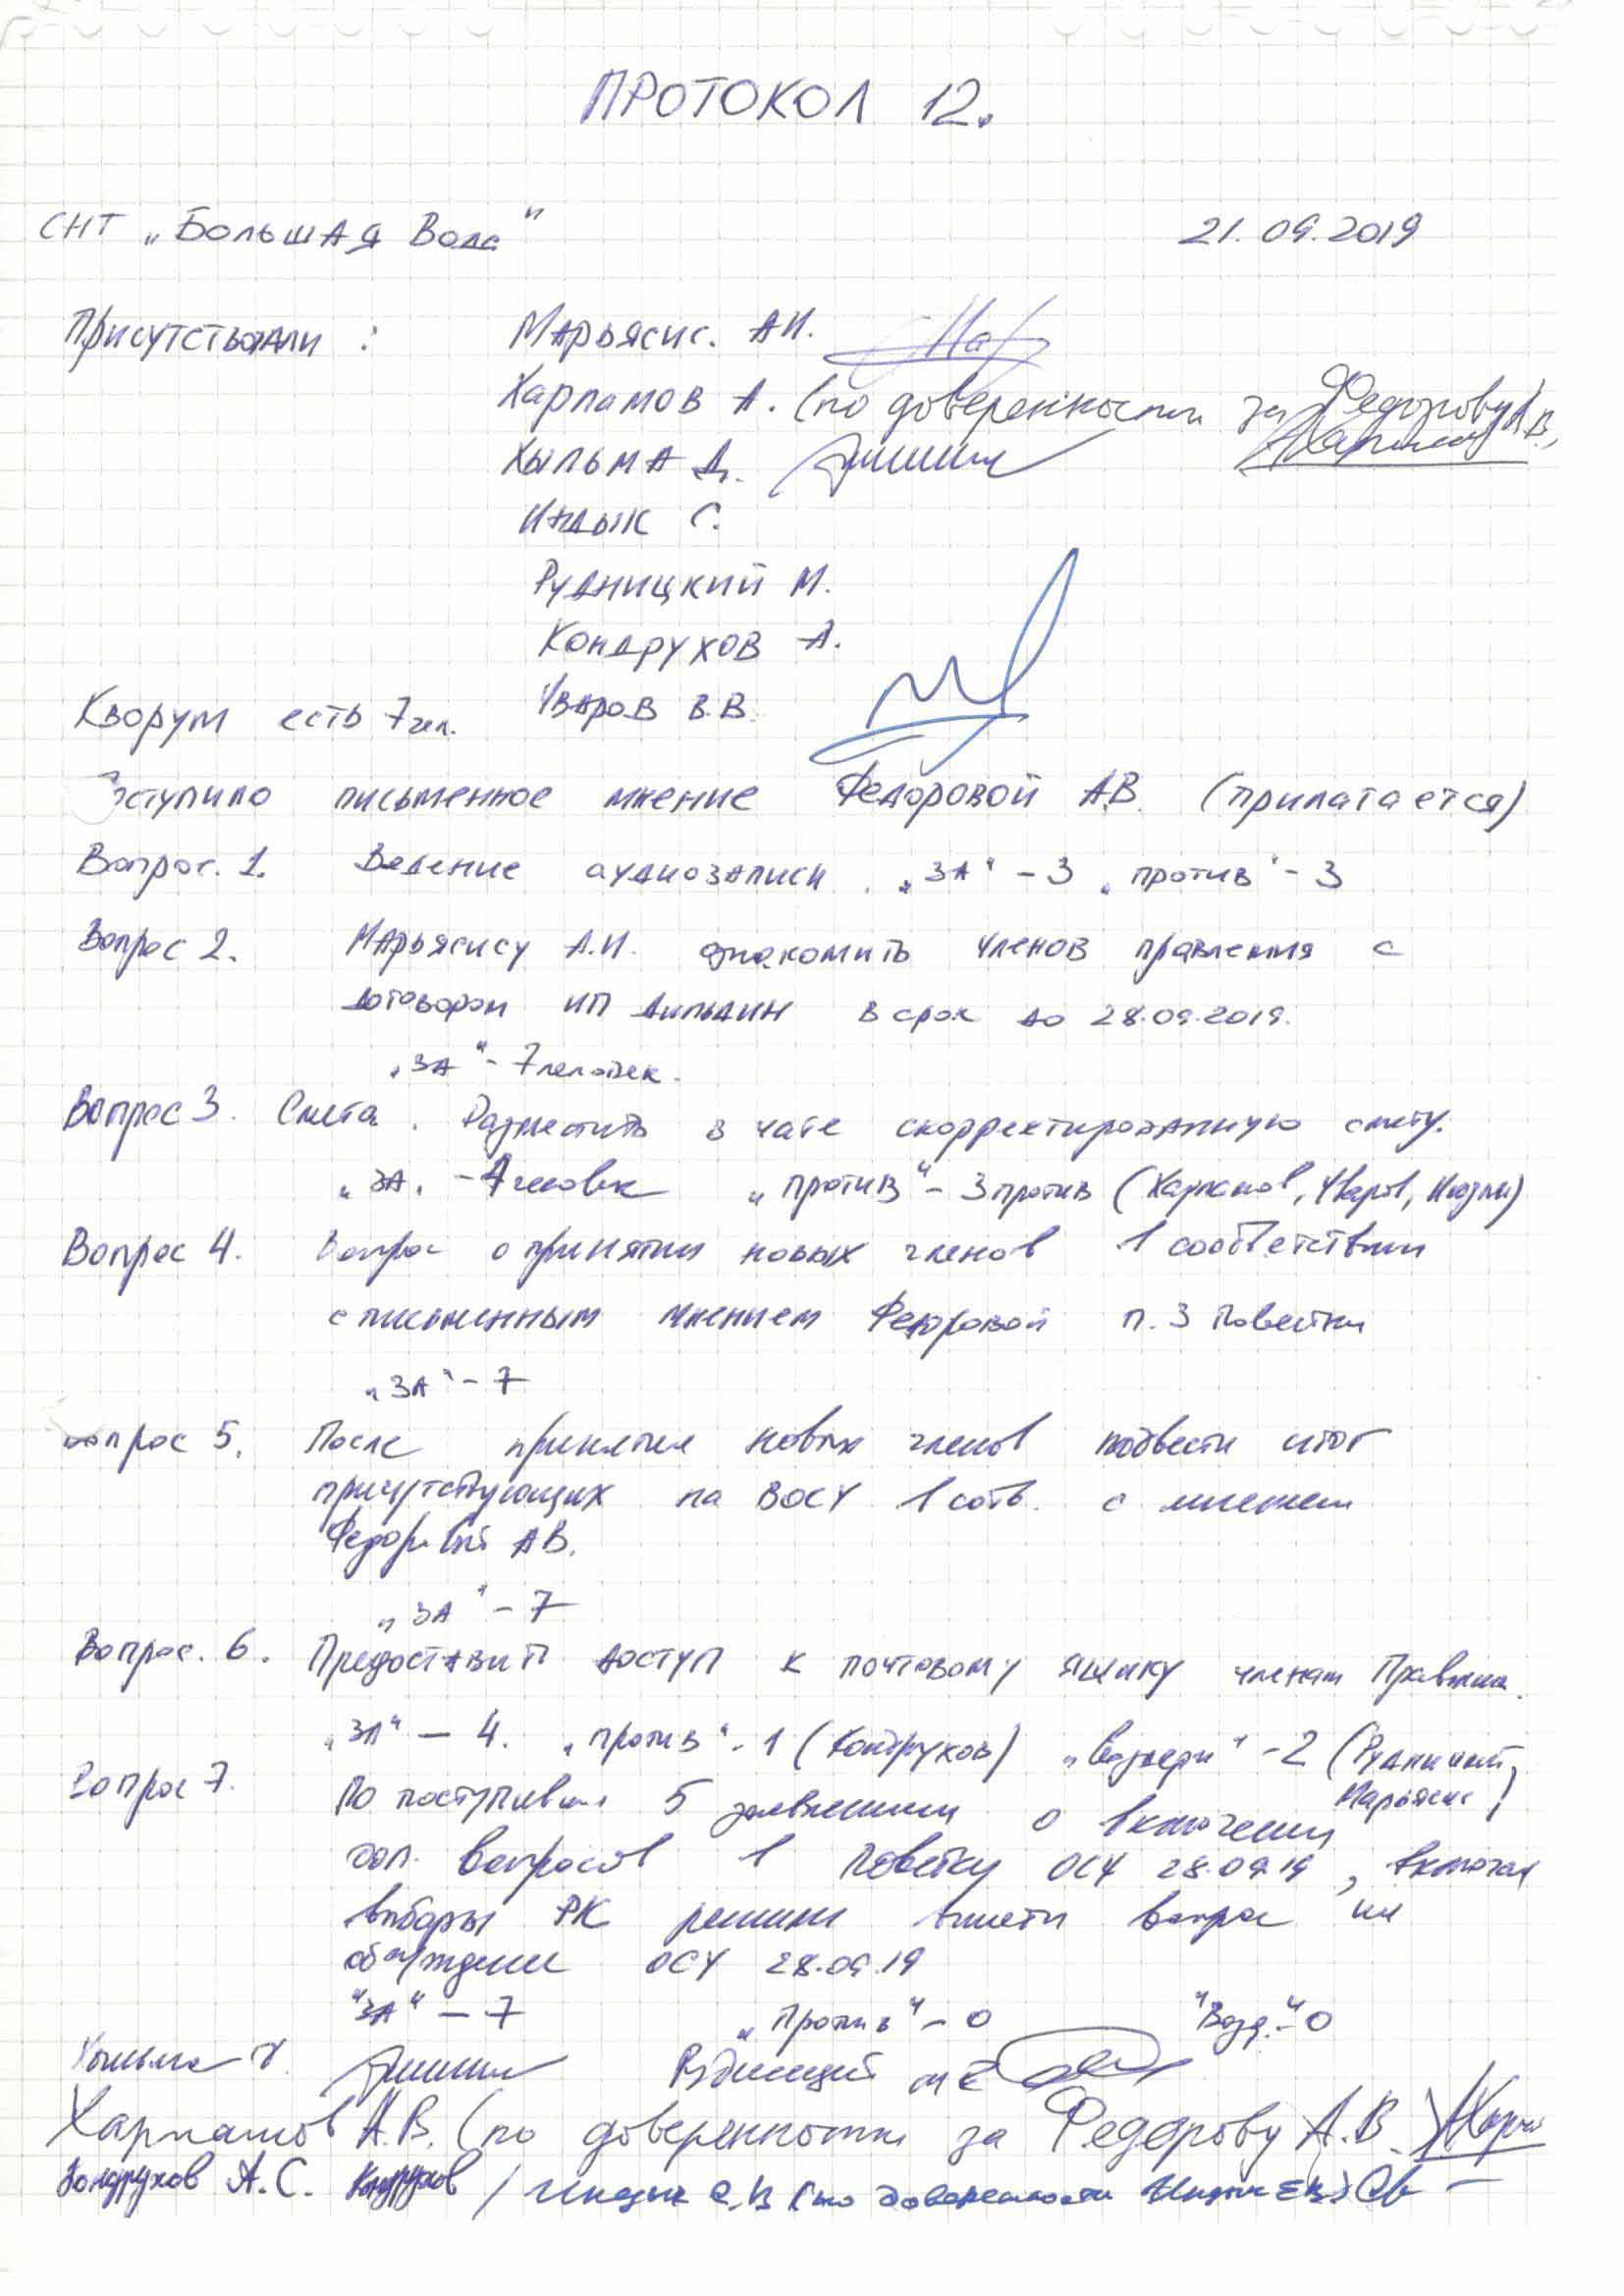 ПРОТОКОЛ 12.
СНТ „Большая Вода"
21.09.2019
Присутствовали :
Марьясис. А.И.
Харламов А. (по доверенности за Федорову А.В.)
Хыльма Д.
Индык С.
Рудницкий М.
Кондрухов А.
Уваров В.В.
Кворум есть 7 чел.
Поступило письменное мнение Федоровой А.В. (прилагается)
Вопрос. 1. Ведение аудиозаписи. „ЗА" - 3 „против" - 3
Вопрос 2. Марьясису А.И. ознакомить членов правления с
договором ИП в срок до 28.09.2019.
„ЗА" - 7 человек.
Вопрос 3. Смета. Разместить в чате скорректированную смету.
„ЗА" - 4 человек „против" - 3 против (Харламов, Уваров, Индык)
Вопрос 4. Вопрос о принятии новых членов в соответствии
с письменным мнением Федоровой п. 3 Повестки
„ЗА" - 7
Вопрос 5. После принятия новых членов подвести итог
присутствующих на ВОСУ в соотв. с мнением
Федоровой А.В.
„ЗА" - 7
Вопрос. 6. Предоставить доступ к почтовому ящику членам Правления.
„ЗА" - 4. „против" - 1 (Кондрухов) „воздерж" - 2 (Рудницкий, Марьясис)
Вопрос 7. По поступившим 5 заявлениям о включении
доп. вопросов в повестку ОСУ 28.09.19, включая
выборы РК решили внести вопрос на
обсуждение ОСУ 28.09.19
"ЗА" - 7 „Против" - 0 "Возд." - 0
Хыльма Рудницкий
Харламов А.В. (по доверенности за Федорову А.В.)
Кондрухов А.С. Кондрухов / Индык С.В. (по доверенности Индык Е.В.)